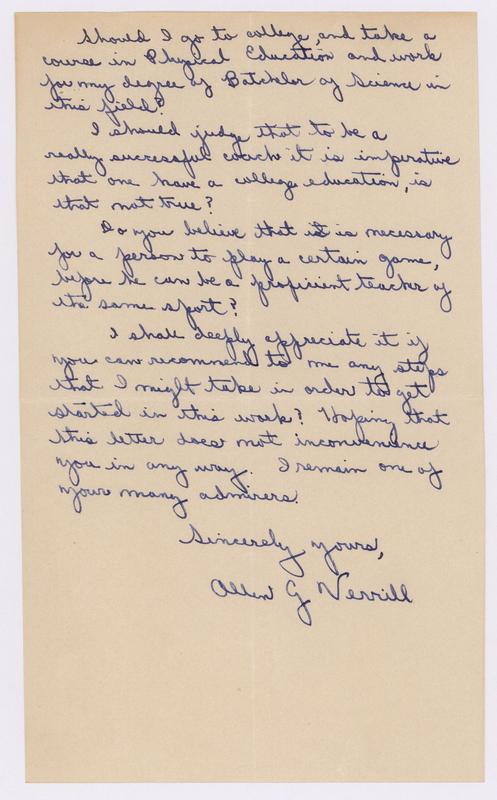 Should I go to college, and take a
course in Physical Education and work
for my degree of Batchlor of Science in
this field?
I should judge that to be a
really successful coach it is imperative
that one have a college education, is
that not true?
Do you believe that it is necessary
for a person to play a certain game,
before he can be a proficient teacher of
the same sport?
I shall deeply appreciate it if
you can recommend to me any steps
that I might take in order to get
started in this work? Hoping that
this letter does not inconvenience
you in any way. I remain one of
your many admirers.
Sincerely yours,
Allen G Verrill